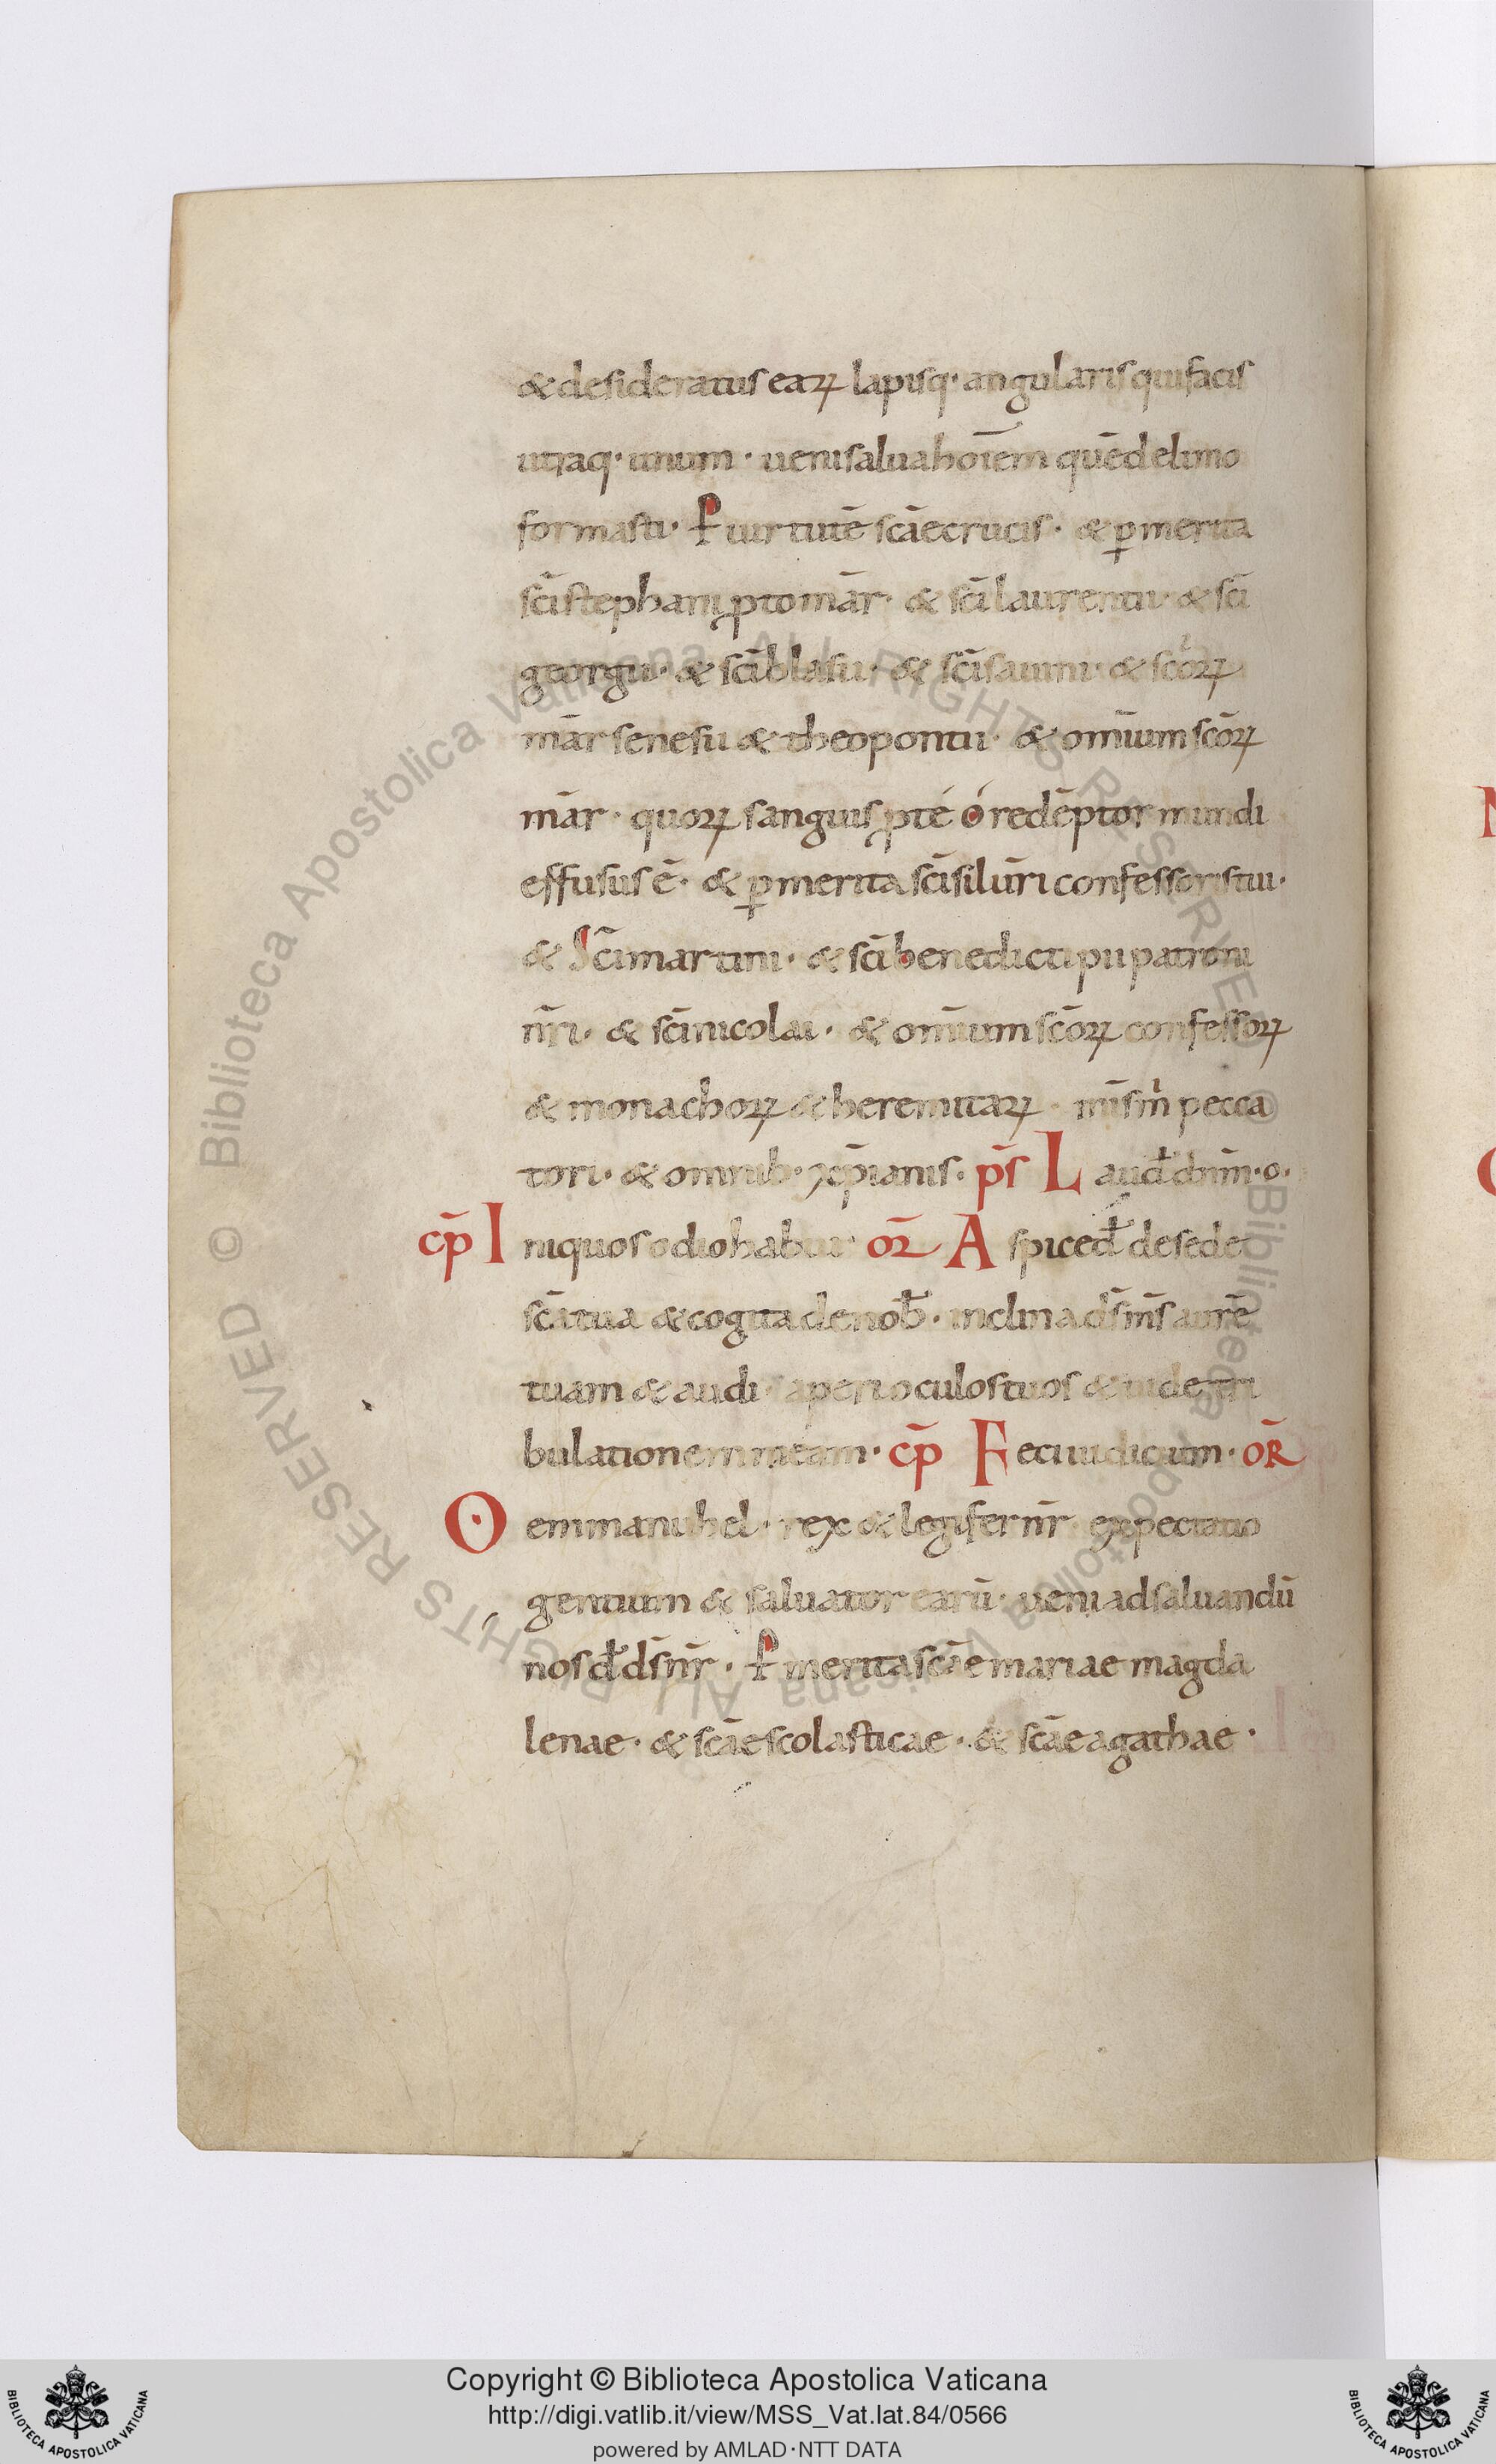 & desideratus eaꝝ lapisq· angularis qui facis
utraq· unum · ueni salua hoīem quē de limo
formasti· P uirtutē scāe crucis · & ꝑ merita
scī stephani ꝓtomār· & scī laurentii· & scī
georgii· & scī blasii· & scī sauini· & scōꝝ
mār senesii & theopontii· & omīum scōꝝ
mār · quoꝝ sanguis ꝓ te ó redēptor mundi
effusus ē· & ꝑ merita scī siluri confessoris tui·
& Scī martini· & scī benedicti pii patroni
nr̄i· & scī nicolai· & omīum scōꝝ confessoꝝ
& monachoꝝ & heremitaꝝ · mīsm̄ pecca
tori· & omnib· xp̄ianis· ps̄ Laud dnm̄·o·
cp̄ Iniquos odio habui· or̄ Aspice đ de sede
scā tua & cogita de nob̄· inclina ds̄ ms̄ aurē
tuam & audi· aperi oculos tuos & uide tri
bulationem meam· cp̄ Feci iudicium· or̄
O emmanuhel· rex & legifer nr̄ expectatio
gentium & saluator earū· ueni ad saluandū
nos đ ds̄ nr̄ · P merita scāe mariae magda
lenae· & scāe scolasticae· & scāe agathae·
Copyright © Biblioteca Apostolica Vaticana
http://digi.vatlib.it/view/MSS_Vat.lat.84/0566
powered by AMLAD·NTT DATA
BIBLIOTECA APOSTOLICA VATICANA
BIBLIOTECA APOSTOLICA VATICANA
Biblioteca Apostolica Vaticana ALL RIGHTS RESERVED © Biblioteca Apostolica Vaticana ALL RIGHTS RESERVED ©